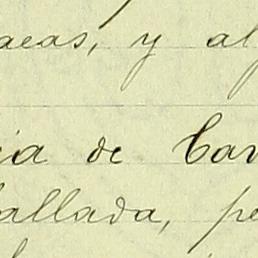 aeas, y al
ia de Car
allada, pe